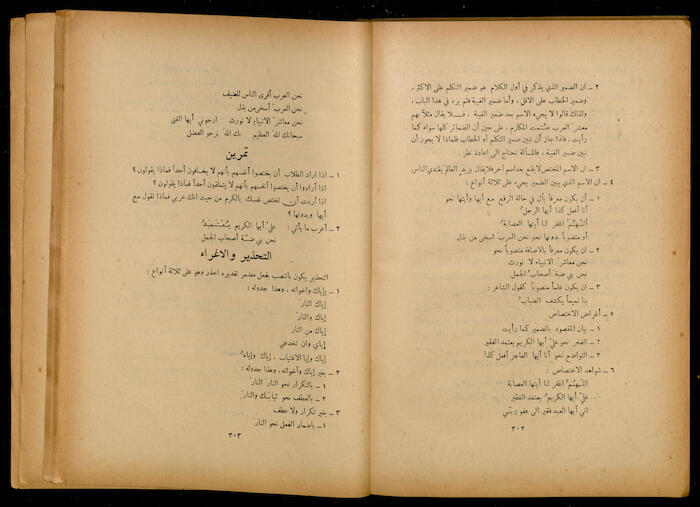 ٢ ـ ان الضمير الذي يذكر في أول الكلام هو ضمير التكلم على الاكثر ،
وضمير الخطاب على الاقل ، وأما ضمير الغيبة فلم يرد في هذا الباب ،
ولذلك قالوا لا يجيء الاسم بعد ضمير الغيبة ، فـلا يقال مثلاً بهم
معشر العرب خُتمت المكارم ، على حين أن الضمائر كلها سواء كما
رأيت ، فاذا جاز أن نبين ضمير التكلم أو الخطاب فلماذا لا يجوز أن
نبين ضمير الغيبة ، فالمسألة تحتاج الى اعادة نظر .
٣ ـ ان الاسم المختص لا يقع بعد اسم آخر فلا يقال بزيد العالم يقتدي الناس
٤ ـ ان الاسم الذي يبين الضمير يجيء على ثلاثة أنواع :
١ ـ أن يكون معرفاً بأل في حالة الرفع مع أيها وأيتها نحو
أنا أفعل كذا أيها الرجلُ
اللهُمَّ اغفر لنا أيتها العصابةُ
أو منصوباً بدونها نحو نحن العربَ اسخى من بذل
٢ ـ ان يكون معرفاً بالاضافة منصوباً نحو
نحن معاشرَ الانبياء لا نورث
نحن بني ضبة أصحابُ الجمل
٣ ـ ان يكون علماً منصوباً كقول الشاعر :
بنا تميماً يكشف الضبابُ
٥ ـ أغراض الاختصاص
١ ـ بيان المقصود بالضمير كما رأيت
٢ ـ الفخر نحو عليَّ أيها الكريم يعتمد الفقير
٣ ـ التواضع نحو أنا أيها العاجز أفعل كذا
٦ ـ شواهد الاختصاص :
اللهُمَّ اغفر لنا أيتها العصابة
عليَّ أيها الكريمُ يعتمد الفقير
اني أيها العبد فقير الى عفو ربّي
٣٠٢
نحن العرب أقرى الناس للضيف
نحن العربَ أسخى من بذل
نحن معاشرَ الانبياء لا نورث ارجوني أيها الفتى
سبحانك اللهَ العظيم بك اللهَ نرجو الفضل
تمرين
١ ـ اذا اراد الطلاب أن يختصوا أنفسهم بأنهم لا يخافون أحداً فماذا يقولون ؟
اذا أرادوا أن يختصوا أنفسهم بأنهم لا يتملقون أحداً فماذا يقولون ؟
اذا أردت أن تختص نفسك بالكرم من حيث انك عربي فماذا تقول مع
أيها وبدونها ؟
٢ ـ أعرب ما يأتي : عليَّ أيها الكريم يُعْتَمَدُ
نحن بني ضبّة أصحاب الجمل
التحذير والاغراء
التحذير يكون بالنصب بفعل مضمر تقديره احذر وهو على ثلاثة أنواع :
١ ـ بإياك واخواته ، وهذا جدوله :
إياك النارَ
إياك والنارَ
إياك من النار
إياي وان تخدعني
إياك وإيا الاغتياب ، إياك وإياهُ
٢ ـ بغير إياك وأخواته ، وهذا جدوله :
١ ـ بالتكرار نحو النارَ النارَ
٢ ـ بالعطف نحو ثيابَك والنارَ
٣ ـ بغير تكرار ولا عطف
١ ـ باضمار الفعل نحو النارَ
٣٠٣